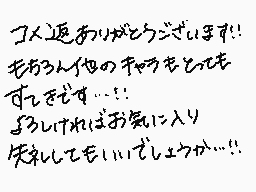 コメ返ありがとうございます!!
もちろん他のキャラもとっても
すてきです…!!
よろしければお気に入り
失礼してもいいでしょうか…!!